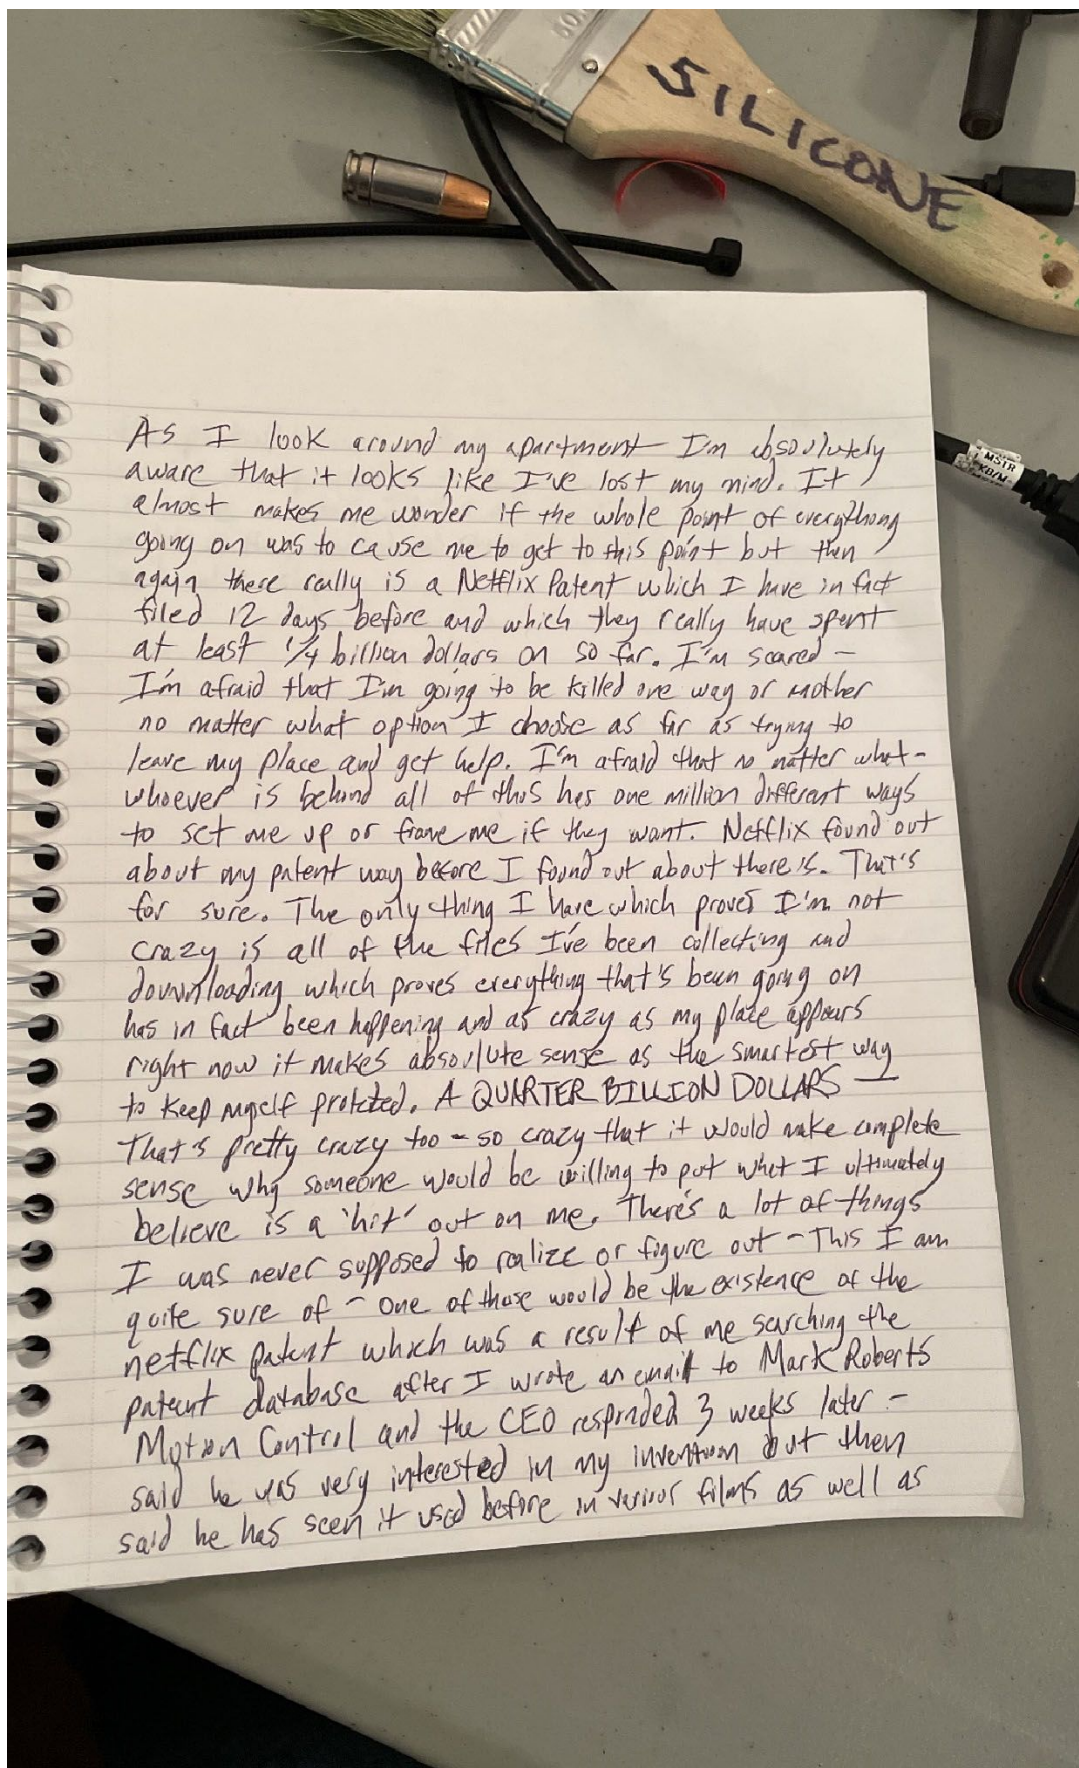 SILICONE
MSTR
KB/M
As I look around my apartment I'm absoulutely
aware that it looks like I've lost my mind. It
almost makes me wonder if the whole point of everything
going on was to cause me to get to this point but then
again there really is a Netflix Patent which I have in fact
filed 12 days before and which they really have spent
at least 1/4 billion dollars on so far. I'm scared –
I'm afraid that I'm going to be killed one way or another
no matter what option I choose as far as trying to
leave my place and get help. I'm afraid that no matter what -
whoever is behind all of this has one million different ways
to set me up or frame me if they want. Netflix found out
about my patent way before I found out about there's. That's
for sure. The only thing I have which proves I'm not
crazy is all of the files I've been collecting and
downloading which proves everything that's been going on
has in fact been happening and as crazy as my place appears
right now it makes absoulute sense as the smartest way
to keep myself protected. A QUARTER BILLION DOLLARS —
That's pretty crazy too - so crazy that it would make complete
sense why someone would be willing to put what I ultimately
believe is a 'hit' out on me. There's a lot of things
I was never supposed to realize or figure out - This I am
quite sure of - one of those would be the existence of the
netflix patent which was a result of me searching the
patent database after I wrote an email to Mark Roberts
Motion Control and the CEO responded 3 weeks later -
said he was very interested in my invention but then
said he has seen it used before in various films as well as